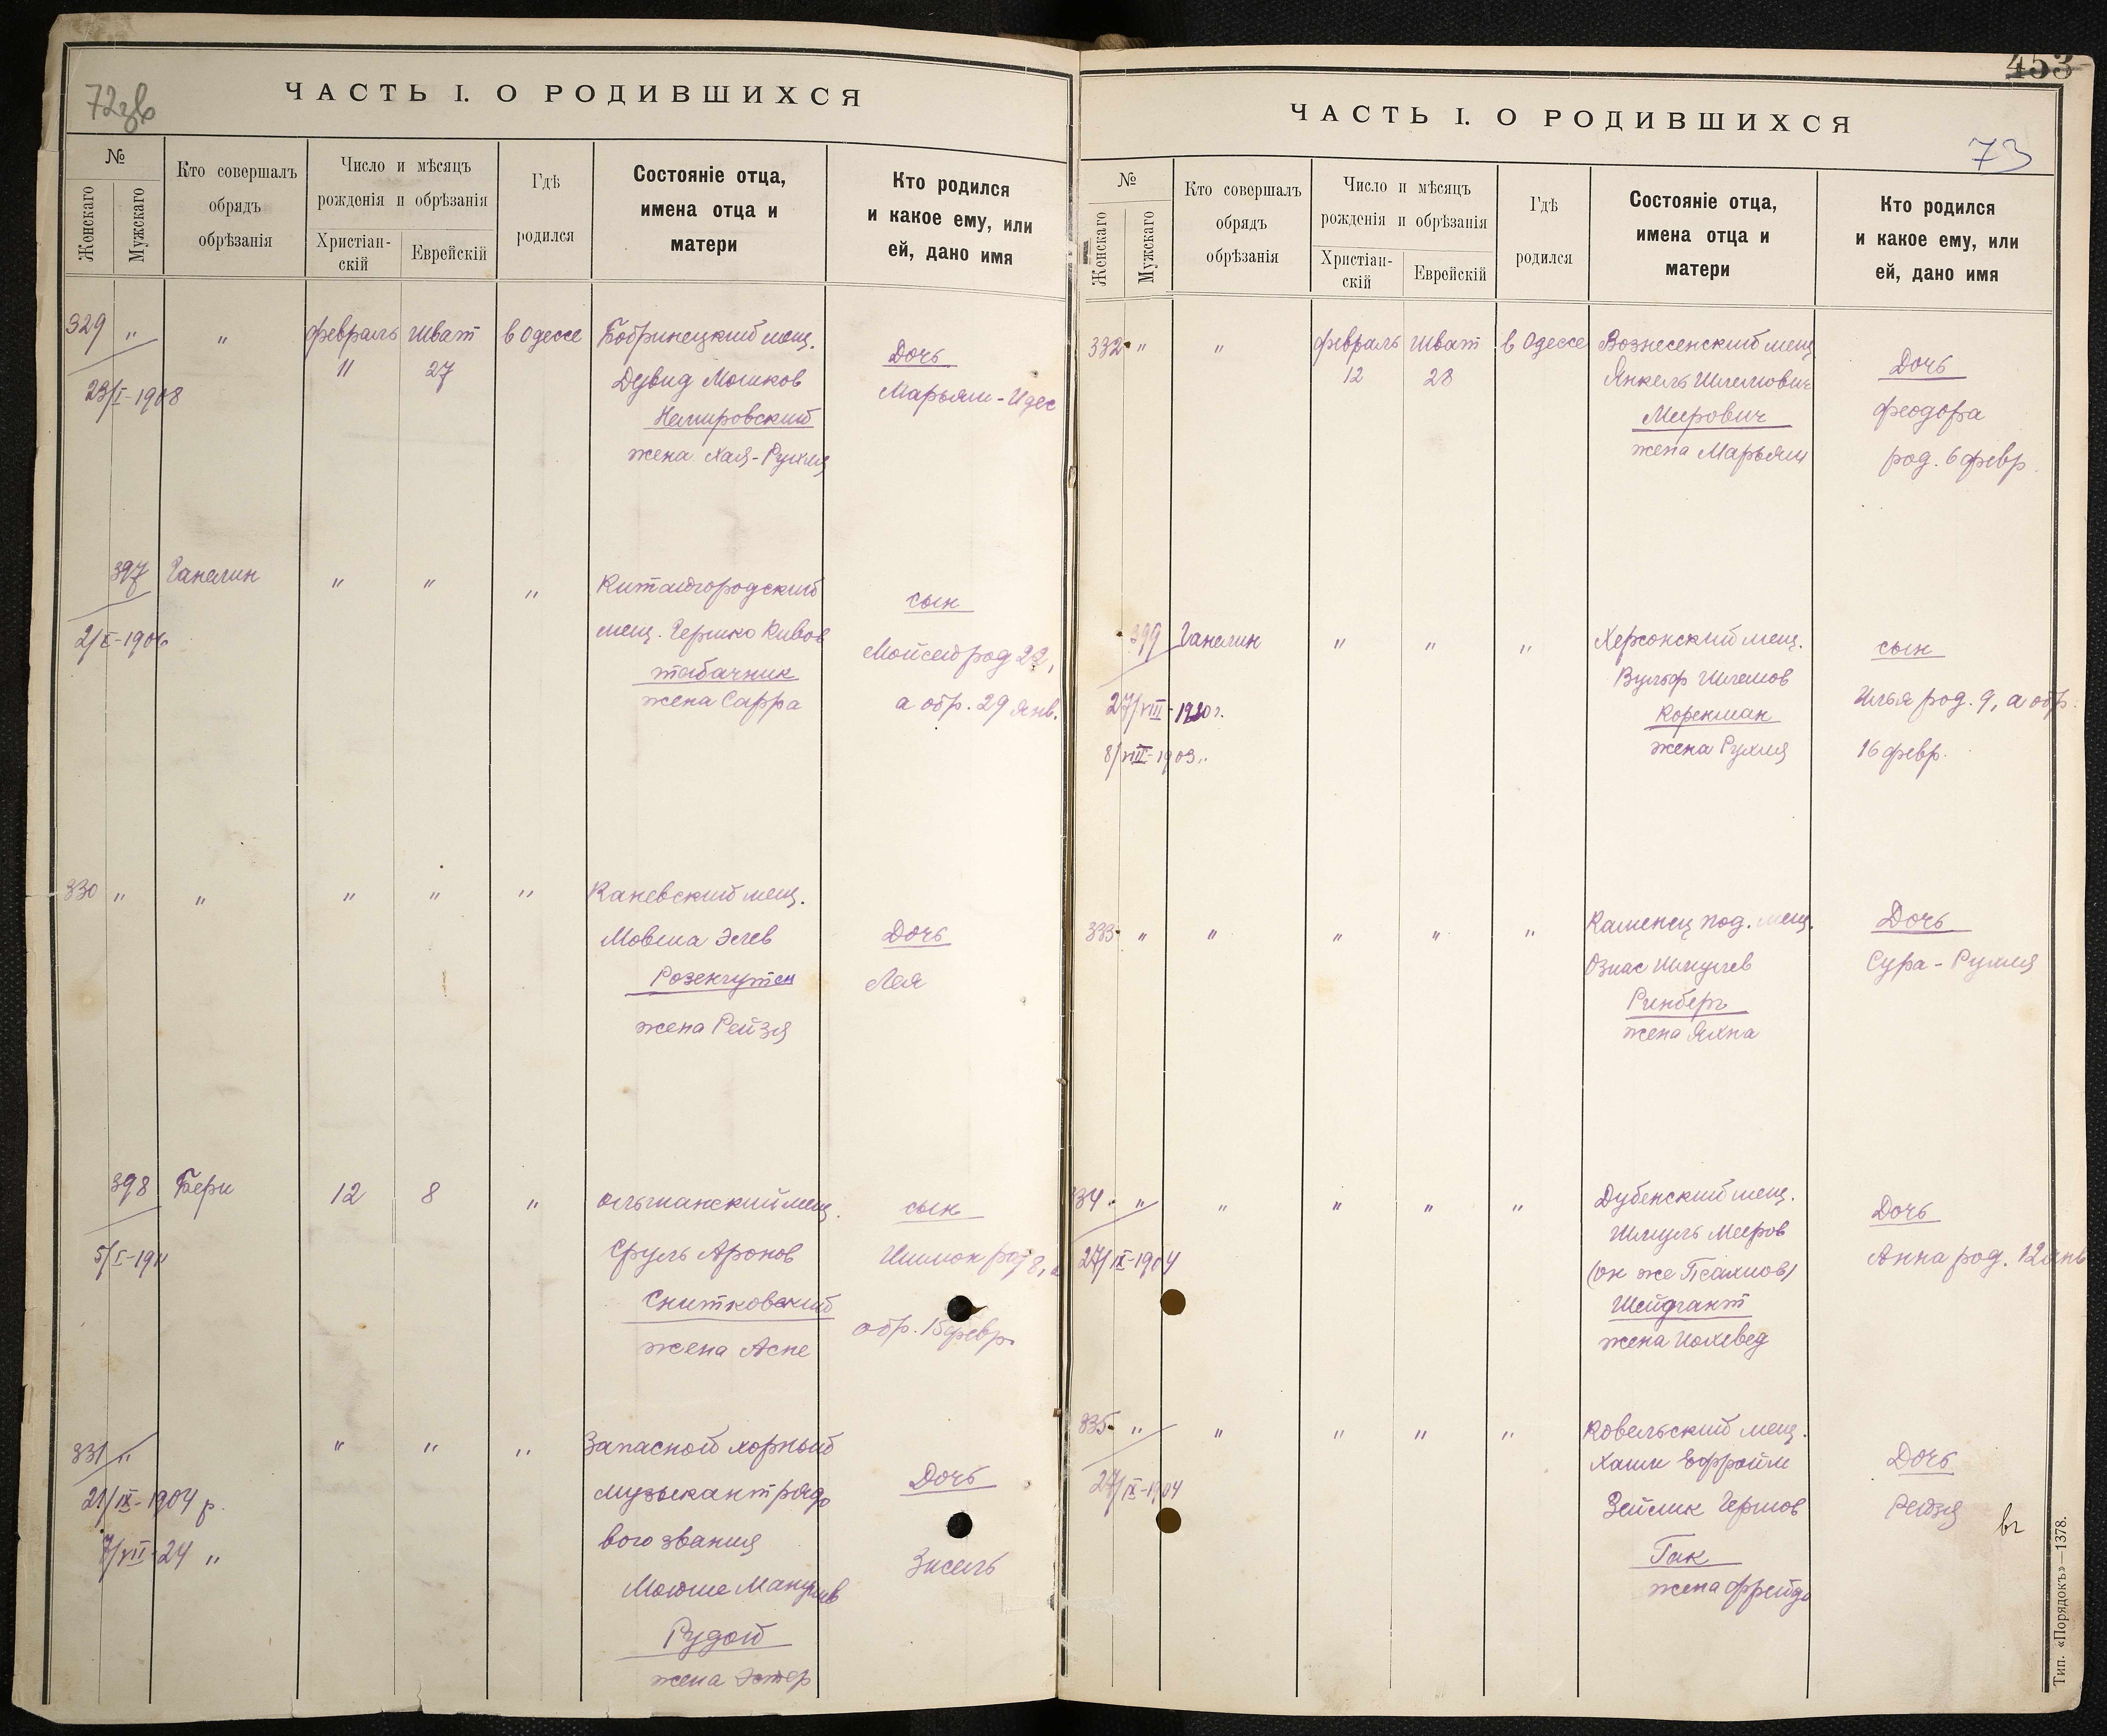 72зв
ЧАСТЬ I. О РОДИВШИХСЯ
№
Женскаго
Мужскаго
Кто совершалъ
обрядъ
обрѣзанія
Число и мѣсяцъ
рожденія и обрѣзанія
Христіан-
скій
Еврейскій
Гдѣ
родился
Состояніе отца,
имена отца и
матери
Кто родился
и какое ему, или
ей, дано имя
329 " " февраль Шват в Одессе Бобринецкий мещ.
11 27
23/I-1908
Дувид Мошков
Немировский
жена Хая-Рухля
Дочь
Марьям-Идес
397 Ганелин " " "
2/X-1906
Китайгородский
мещ. Гершко Кивов
табачник
жена Сарра
сын
Мойсей род 22,
а обр. 29 янв.
330 " " " " "
Каневский мещ.
Мовша Элев
Розенгутен
жена Рейзя
Дочь
Лея
398 Бери 12 8 "
5/I-1911
Ольшанский мещ.
Сруль Аронов
Снитковский
жена Асне
сын
Шимон род 8, а
обр. 15 февр.
331 " " " "
21/IX-1904 р.
7/VII-24 "
Запасной хорный
музыкант рядо
вого звания
Мошие
Рудой
жена Эстер
Дочь
Зисель
453
ЧАСТЬ I. О РОДИВШИХСЯ
73
№
Женскаго
Мужскаго
Кто совершалъ
обрядъ
обрѣзанія
Число и мѣсяцъ
рожденія и обрѣзанія
Христіан-
скій
Еврейскій
Гдѣ
родился
Состояніе отца,
имена отца и
матери
Кто родился
и какое ему, или
ей, дано имя
332 " " февраль Шват в Одессе Вознесенский мещ
12 28
Янкель Шлемович
Меерович
жена Марьям
Дочь
Феодора
род. 6 февр.
399 Ганелин " " "
27/VIII-1920 г.
8/VIII-1903 "
Херсонский мещ.
Вульф Шлемов
Коренман
жена Рухля
сын
Илья род. 9, а обр.
16 февр.
333 " " " " "
Каменец под. мещ.
Озиас
Ринберг
жена Яхна
Дочь
Сура-Рухля
334 " " " " "
27/IX-1904
Дубенский мещ.
Шмуль Мееров
(он же Псахнов)
Шейдгант
жена Иохевед
Дочь
Анна род. 12 янв
335 " " " " "
27/IX-1904
Ковельский мещ.
Хаим Ефройм
Зейлик Гершов
Гак
жена Фрейда
Дочь
Рейзя
Тип. «Порядокъ»—1378.